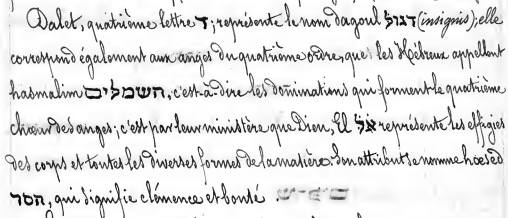 Dalet, quatrième lettre ד; représente le nom dagoul דגול (insignis); elle
correspond également aux anges du quatrième ordre, que les Hébreux appellent
hasmalim חשמלים, c'est-à-dire les dominations qui forment le quatrième
chœur des anges; c'est par leur ministère que Dieu, El אל représente les effigies
des corps et toutes les diverses formes de la matière. Son attribut se nomme hœsed
חסד, qui signifie clémence et bonté.